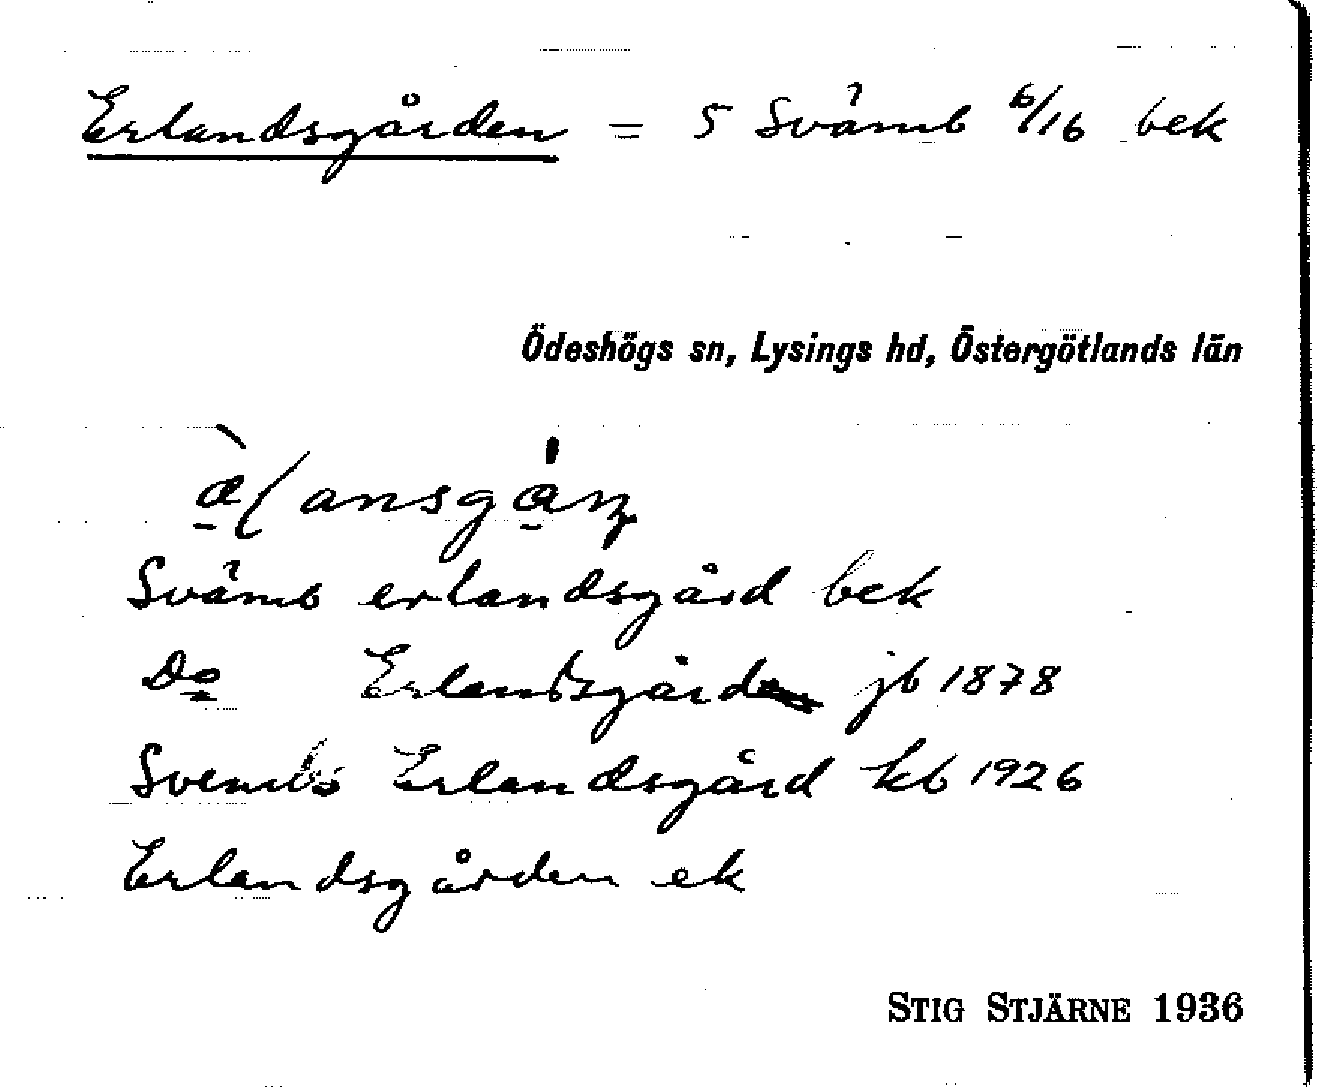 Erlandsgården = 5 Svämb 6/16 bek
Ödeshögs sn, Lysings hd, Östergötlands län
Svämb erlandsgård bek
Do Erlandsgård jb 1878
Svembs Erlandsgård kb 1926
Erlandsgården ek
STIG STJÄRNE 1936